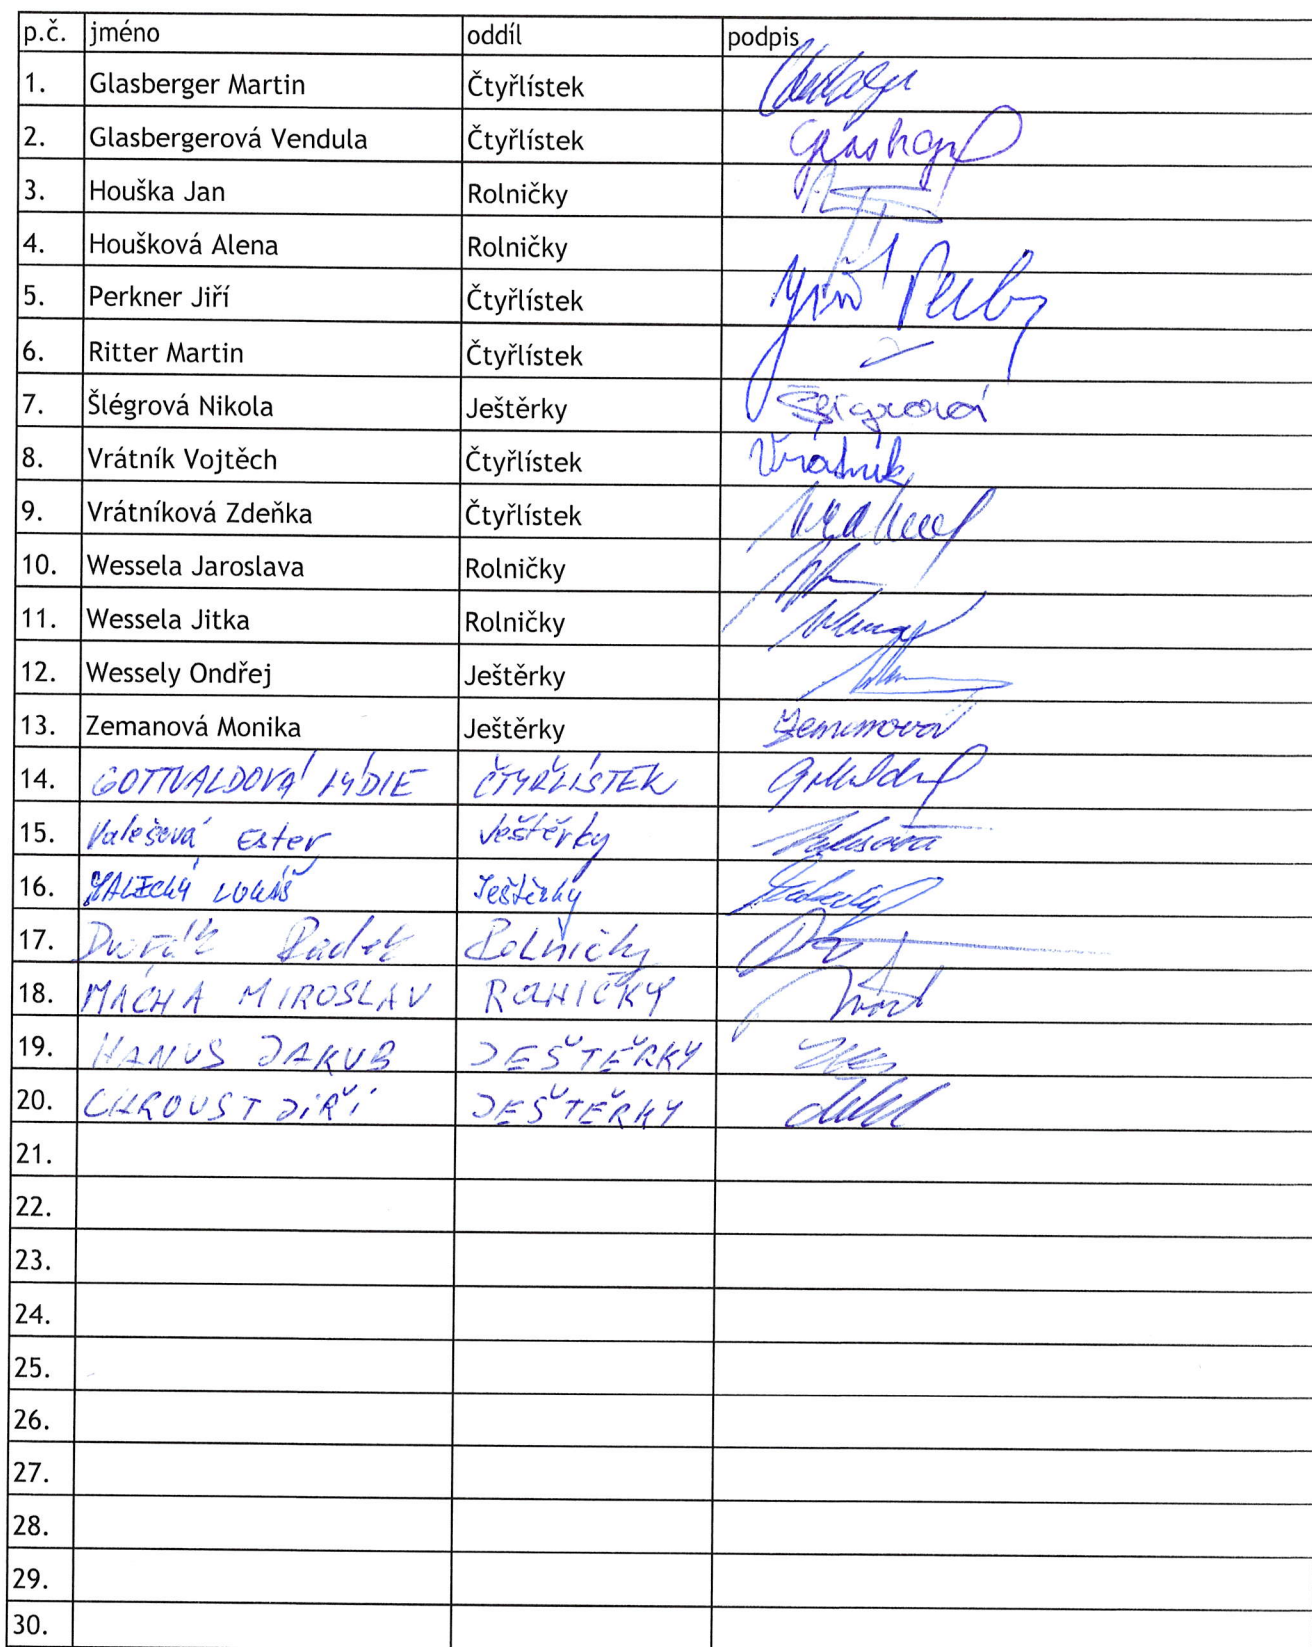 p.č. jméno oddíl podpis
1. Glasberger Martin Čtyřlístek
2. Glasbergerová Vendula Čtyřlístek
3. Houška Jan Rolničky
4. Houšková Alena Rolničky
5. Perkner Jiří Čtyřlístek
6. Ritter Martin Čtyřlístek
7. Šlégrová Nikola Ještěrky
8. Vrátník Vojtěch Čtyřlístek Vrátník
9. Vrátníková Zdeňka Čtyřlístek
10. Wessela Jaroslava Rolničky
11. Wessela Jitka Rolničky
12. Wessely Ondřej Ještěrky
13. Zemanová Monika Ještěrky Zemanová
14. GOTTVALDOVÁ LÝDIE ČTYŘLÍSTEK
15. Valešová Ester Ještěrky Valešová
16. MALECKÝ LUKÁŠ Ještěrky
17. Dvořák Radek Rolničky
18. MACHA MIROSLAV ROLNIČKY
19. HANUS JAKUB JEŠTĚRKY
20. CHROUST JIŘÍ JEŠTĚRKY
21.
22.
23.
24.
25.
26.
27.
28.
29.
30.